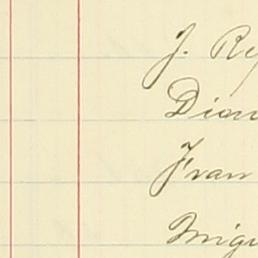 J. Re
Dion
Fran
Migu